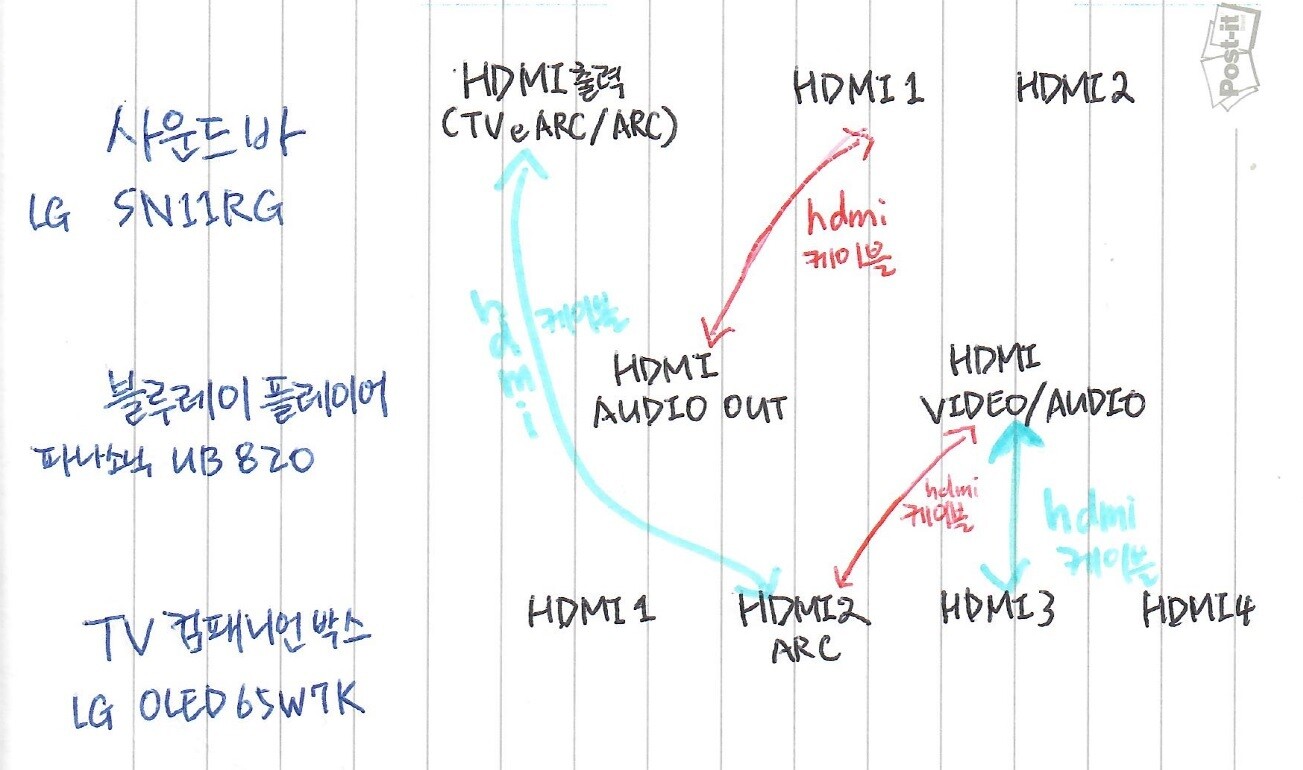 Post-it
HDMI 출력
(TV eARC/ARC)
HDMI 1
HDMI 2
사운드바
LG SN11RG
hdmi
케이블
hdmi
케이블
HDMI
AUDIO OUT
HDMI
VIDEO/AUDIO
블루레이 플레이어
파나소닉 UB 820
hdmi
케이블
hdmi
케이블
HDMI 1
HDMI2
ARC
HDMI 3
HDMI4
TV 컴패니언 박스
LG OLED65W7K